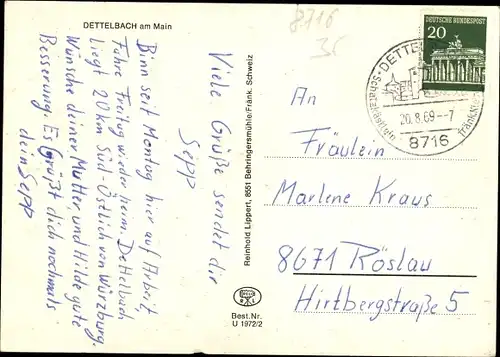 DETTELBACH am Main
8716
35
Viele Grüße sendet dir
Sepp
Binn seit Montag hier auf Arbeit,
Fahre Freitag wieder heim. Dettelbach
liegt 20 km Süd-Östlich von Würzburg.
Wünsche deiner Mutter und Hilde gute
Besserung. Es Grüßt dich nochmals
dein Sepp
Reinhold Lippert, 8551 Behringersmühle/Fränk. Schweiz
Best.Nr.
U 1972/2
DEUTSCHE BUNDESPOST
20
DETTEL
Schatzkästlein
20.8.69–7
8716
An
Fräulein
Marlene Kraus
8671 Röslau
Hirtbergstraße 5